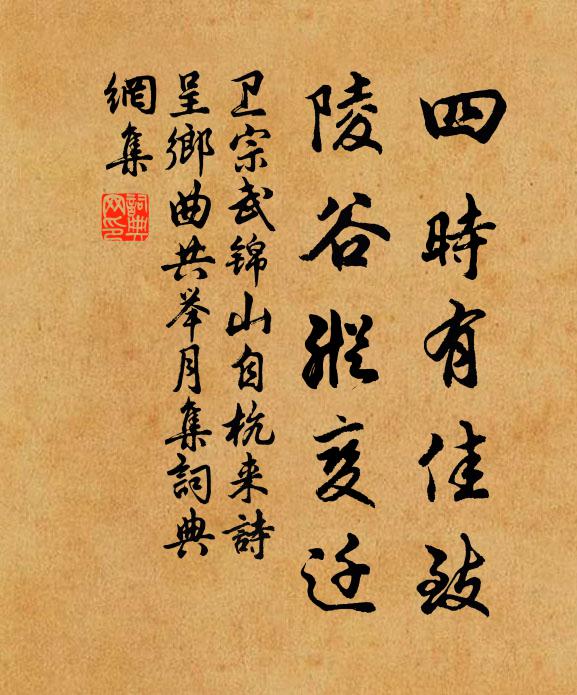 四時有佳致
陵谷縱变迁
卫宗武锦山自杭来詩
呈鄉曲共举月集詞典
網集
詞典網印